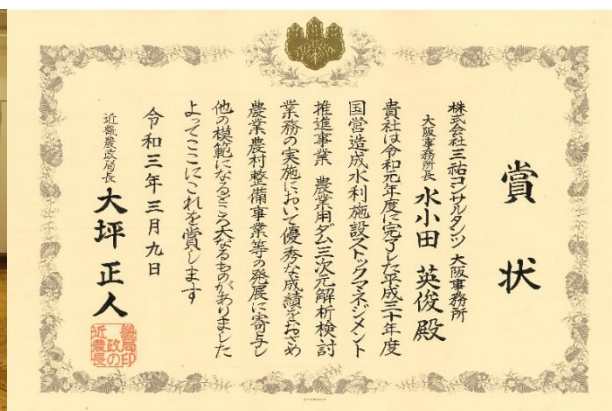 賞状
株式会社三祐コンサルタンツ 大阪事務所
大阪事務所長 水小田 英俊殿
貴社は令和元年度に完了した平成三十年度
国営造成水利施設ストックマネジメント
推進事業 農業用ダム三次元解析検討
業務の実施において優秀な成績をおさめ
農業農村整備事業等の発展に寄与し
他の模範になるところ大なるものがありました
よってここにこれを賞します
令和三年三月九日
近畿農政局長 大坪正人
近畿農政局長の印